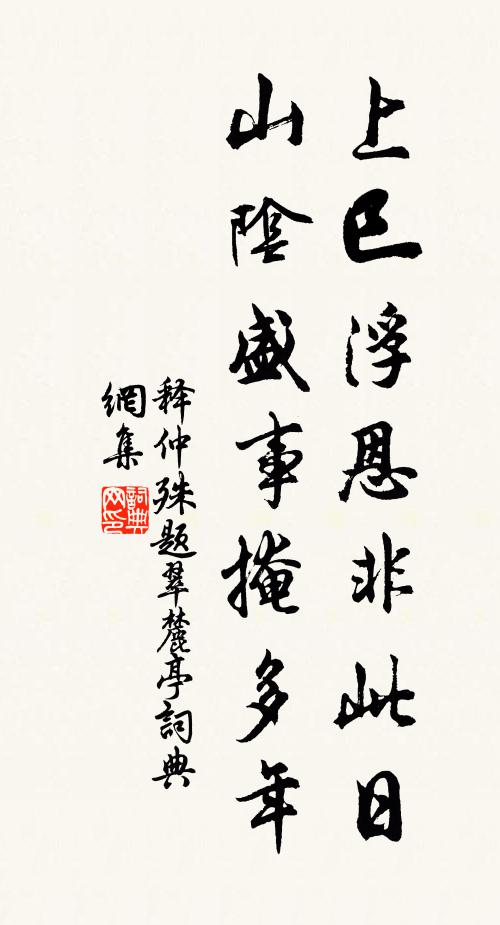 上巳浮恩非此日
山陰盛事掩多年
释仲殊题翠麓亭詞典
網集
詞典
网印